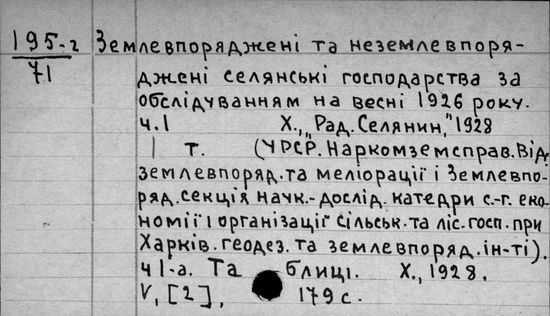 195-г Землевпоряджені та неземлевпоря-
71 джені селянські господарства за
обслідуванням на весні 1926 року.
ч.1 Х., „Рад. Селянин," 1928
1 т. (УРСР. Наркомземсправ. Від.
землевпоряд. та меліорації і Землевпо-
ряд. секція наук.-дослід. катедри с.-г. еко-
номії і організації сільськ. та ліс. госп. при
Харків. геодез. та землевпоряд. ін-ті).
ч 1-а. Таблиці. Х., 1928.
V, [2], 179 с.